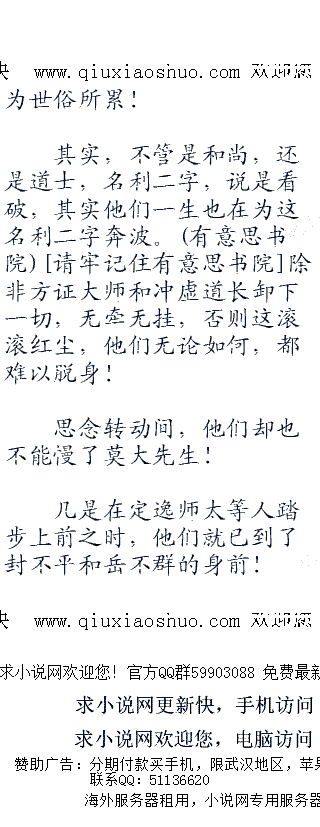 快 www.qiuxiaoshuo.com 欢迎您
为世俗所累！
其实，不管是和尚，还
是道士，名利二字，说是看
破，其实他们一生也在为这
名利二字奔波。(有意思书
院)[请牢记住有意思书院]除
非方证大师和冲虚道长卸下
一切，无牵无挂，否则这滚
滚红尘，他们无论如何，都
难以脱身！
思念转动间，他们却也
不能慢了莫大先生！
几是在定逸师太等人踏
步上前之时，他们就已到了
封不平和岳不群的身前！
快 www.qiuxiaoshuo.com 欢迎您
求小说网欢迎您！官方QQ群59903088 免费最新
求小说网更新快，手机访问
求小说网欢迎您，电脑访问
赞助广告：分期付款买手机，限武汉地区，苹果
联系QQ：51136620
海外服务器租用，小说网专用服务器